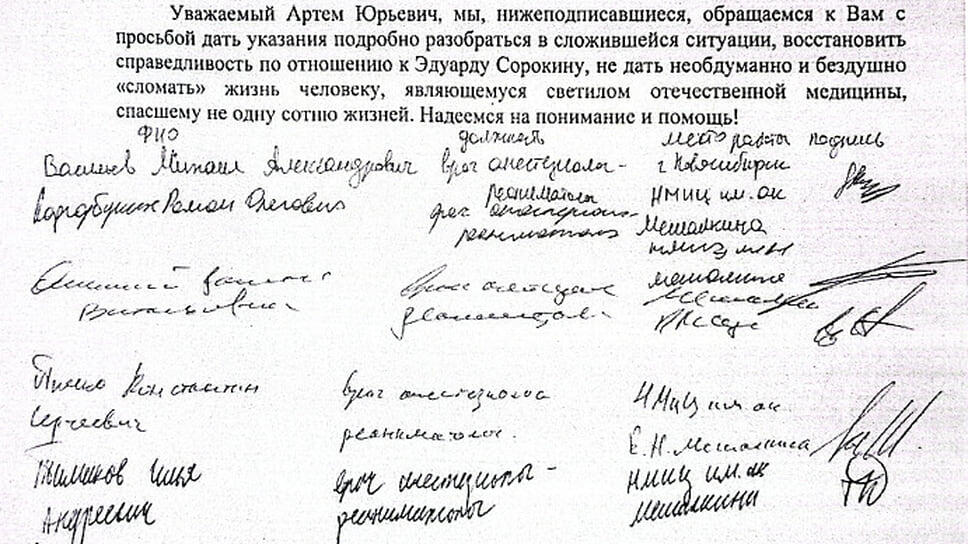 Уважаемый Артем Юрьевич, мы, нижеподписавшиеся, обращаемся к Вам с
просьбой дать указания подробно разобраться в сложившейся ситуации, восстановить
справедливость по отношению к Эдуарду Сорокину, не дать необдуманно и бездушно
«сломать» жизнь человеку, являющемуся светилом отечественной медицины,
спасшему не одну сотню жизней. Надеемся на понимание и помощь!
ФИО должность место работы подпись
Васильев Михаил Александрович врач анестезиолог- г Новосибирск
реаниматолог НМИЦ им. ак
Роман Олегович врач анестезиолог- Мешалкина
реаниматолог НМИЦ им
врач мешалкина
Витальевич
Константин врач анестезиолог НМИЦ им. ак
Сергеевич реаниматолог. Е.Н. Мешалкина
Илья врач анестезиолог- НМИЦ им. ак
Андреевич реаниматолог мешалкина